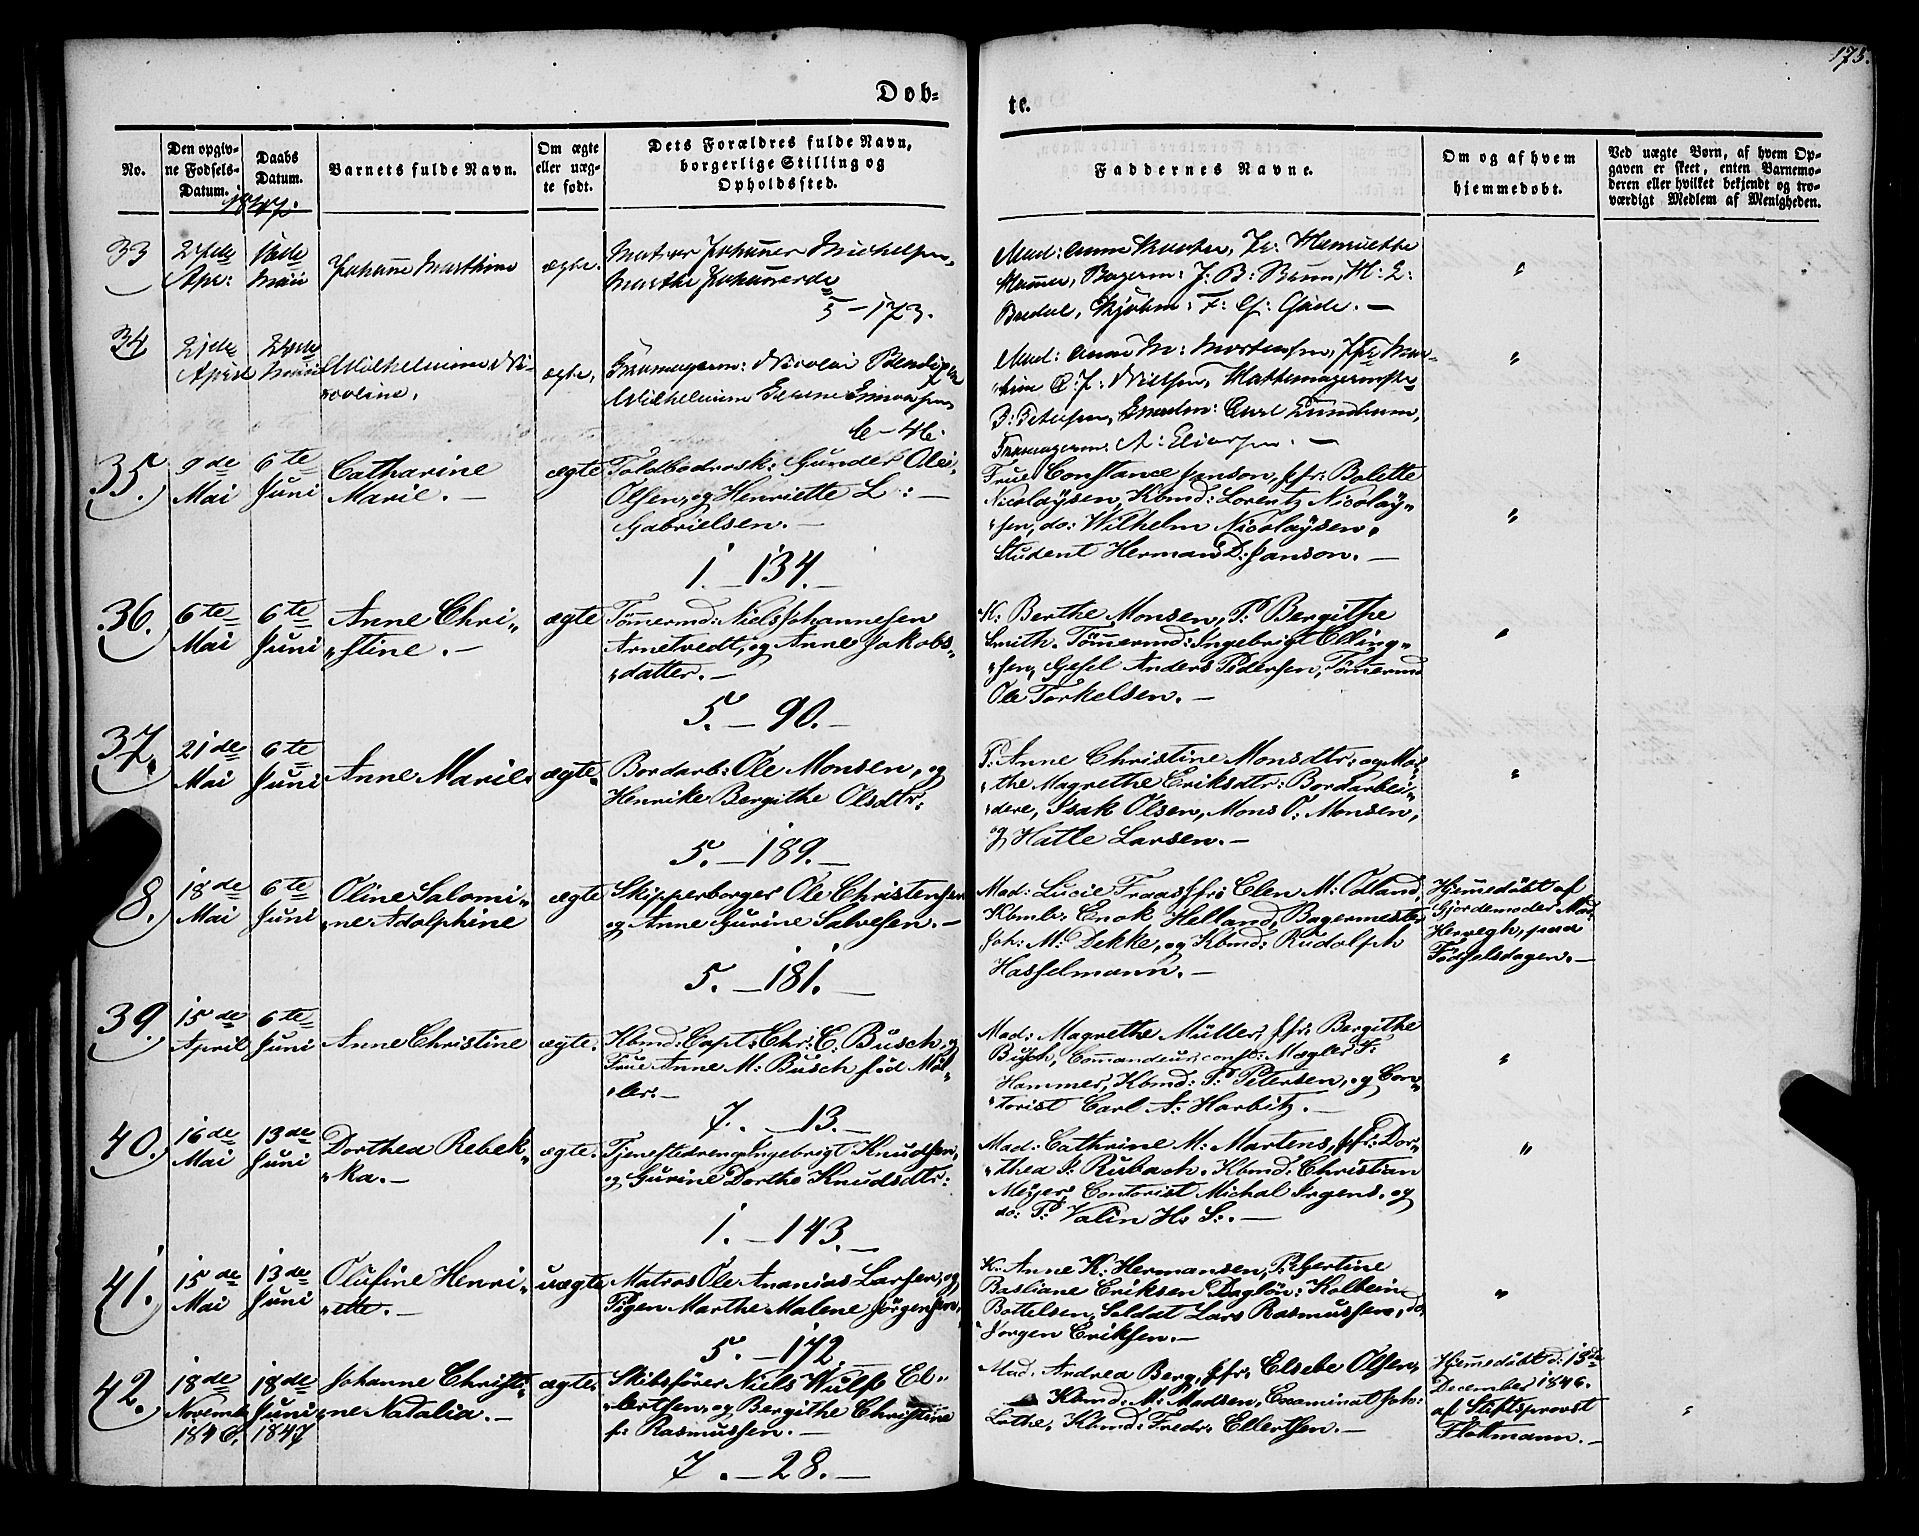 175.
Døb-
te.
No.
Den opgiv-
ne Fødsels-
Datum.
Daabs
Datum.
1847.
Barnets fulde Navn.
Om ægte
eller uæg-
te født.
Dets Forældres fulde Navn,
borgerlige Stilling og
Opholdssted.
Faddernes Navne.
Om og af hvem
hjemmedøbt.
Ved uægte Børn, af hvem Op-
gaven er skeet, enten Barnemo-
deren eller hvilket bekjendt og tro-
værdigt Medlem af Menigheden.
33
Apr:
Mai
Johanne Marthine
ægte.
Matros Johannes Michelsen,
Marthe Johannesd
5 - 173.
Mad: Anne
Hammer, Bagerm: J: B: Bruun, H: L:
Bredal, Kjøbm: F: G: Gade. -
"
34
21de
April
24de
Mai
Wilhelmine Ni-
coline.
ægte.
Nicolai
Wilhelmine
6 - 46.
Mad: Anne M: Mortensen, Jfr
Nielsen,
B: Petersen, Carl Lundbum,
A: Eliassen. -
"
35.
9de
Mai
6te
Juni
Catharine
Marie. -
ægte
Toldbodrosk: Gunder Olai
Olsen, og Henriette L: -
Gabrielsen. -
1. - 134. -
Frue Constance Janson, Jfr: Bolette
Nicolaysen, Kbmd: Lorentz Nicolay-
-sen, do: Wilhelm Nicolaysen.
Student Herman D: Janson. -
"
36.
6te
Mai
6te
Juni
Anne Chri-
-stine. -
ægte
Tömermd: Niels Johannesen
Arnetvedt, og Anne Jakobs-
-datter. -
5. - 90. -
K: Berthe Monsen, P: Bergithe
Smith. Tömermd: Ingebrigt Elling-
-sen, Gesel Anders Pedersen, Tömermd
Ole Torkelsen. -
"
37.
21de
Mai
6te
Juni
Anne Marie.
ægte.
Bordarb: Ole Monsen, og
Henrike Bergithe Olsdtr:
5. - 189. -
P: Anne Christine Monsdtr: og Mar-
-the Magrethe Eriksdtr: Bordarbei-
-dere, Isak Olsen, Mons O: Monsen,
og Hatle Larsen. -
"
8.
18de
Mai
6te
Juni
Oline Salomi-
-ne Adolphine
ægte
Skipperborger Ole Christensen
og Anne Gurine Salvesen. -
5. - 181. -
Mad: Lucie Fraas, Jfr: Elen M: Odland,
Kbmd: Enok Helland, Bagermester
Joh: M: Dekke, og Kbmd: Rudolph
Hasselmann. -
Hjemmedöbt af
Gjordemoder Mad:
Herregh, paa
Födselsdagen. -
39.
15de
April
6te
Juni
Anne Christine
ægte.
Kbmd: Capt: Chr: C: Busch, og
Frue Anne M: Busch föd Mül-
-ler. -
7. - 13. -
Mad: Magrethe Müller, Jfr: Bergithe
Busch, Commandeur, const: Mægler F:
Hammer, Kbmd: P: Petersen, og Con-
-torist Carl A: Harbitz. -
"
40.
16de
Mai
13de
Juni
Dorthea Rebek-
-ka. -
ægte.
Tjenestedreng Ingebrigt Knudsen,
og Gurine Dorthe Knudsdtr:
1. - 143. -
Mad: Cathrine M: Martens, Jfr: Dor-
-thea J: Rubach. Kbmd: Christian
Meyer, Contorist Michal Irgens, og
do: P: Valin H: S:. -
"
41.
15de
Mai
13de
Juni
Olufine Henri-
-ette. -
uægte
Matros Ole Ananias Larsen, og
Pigen Marthe Malene Jörgensen,
5. - 172.
K: Anne K: Hermansen, P: Gertine
Basliane Eriksen Daglön: Kolbein
Bottelsen, Soldat Lars Rasmussen, do.
Jörgen Eriksen. -
"
42.
18de
Novemb:
1846.
18de
Juni
1847
Johanne Christi-
ne Natalia. -
ægte.
Skibsförer Niels Wulff El-
-lertsen, og Bergithe Christine
f: Rasmussen. -
7. - 28. -
Mad. Andrea Berg, Jfr: Elsebe Olsen,
Kbmd: M: Madsen, Examinat Joh:
Lothe, Kbmd: Fredr: Ellertsen. -
Hjemmedöbt d: 18de
December 1846.
af Stiftsprovst
Flottmann. -
"